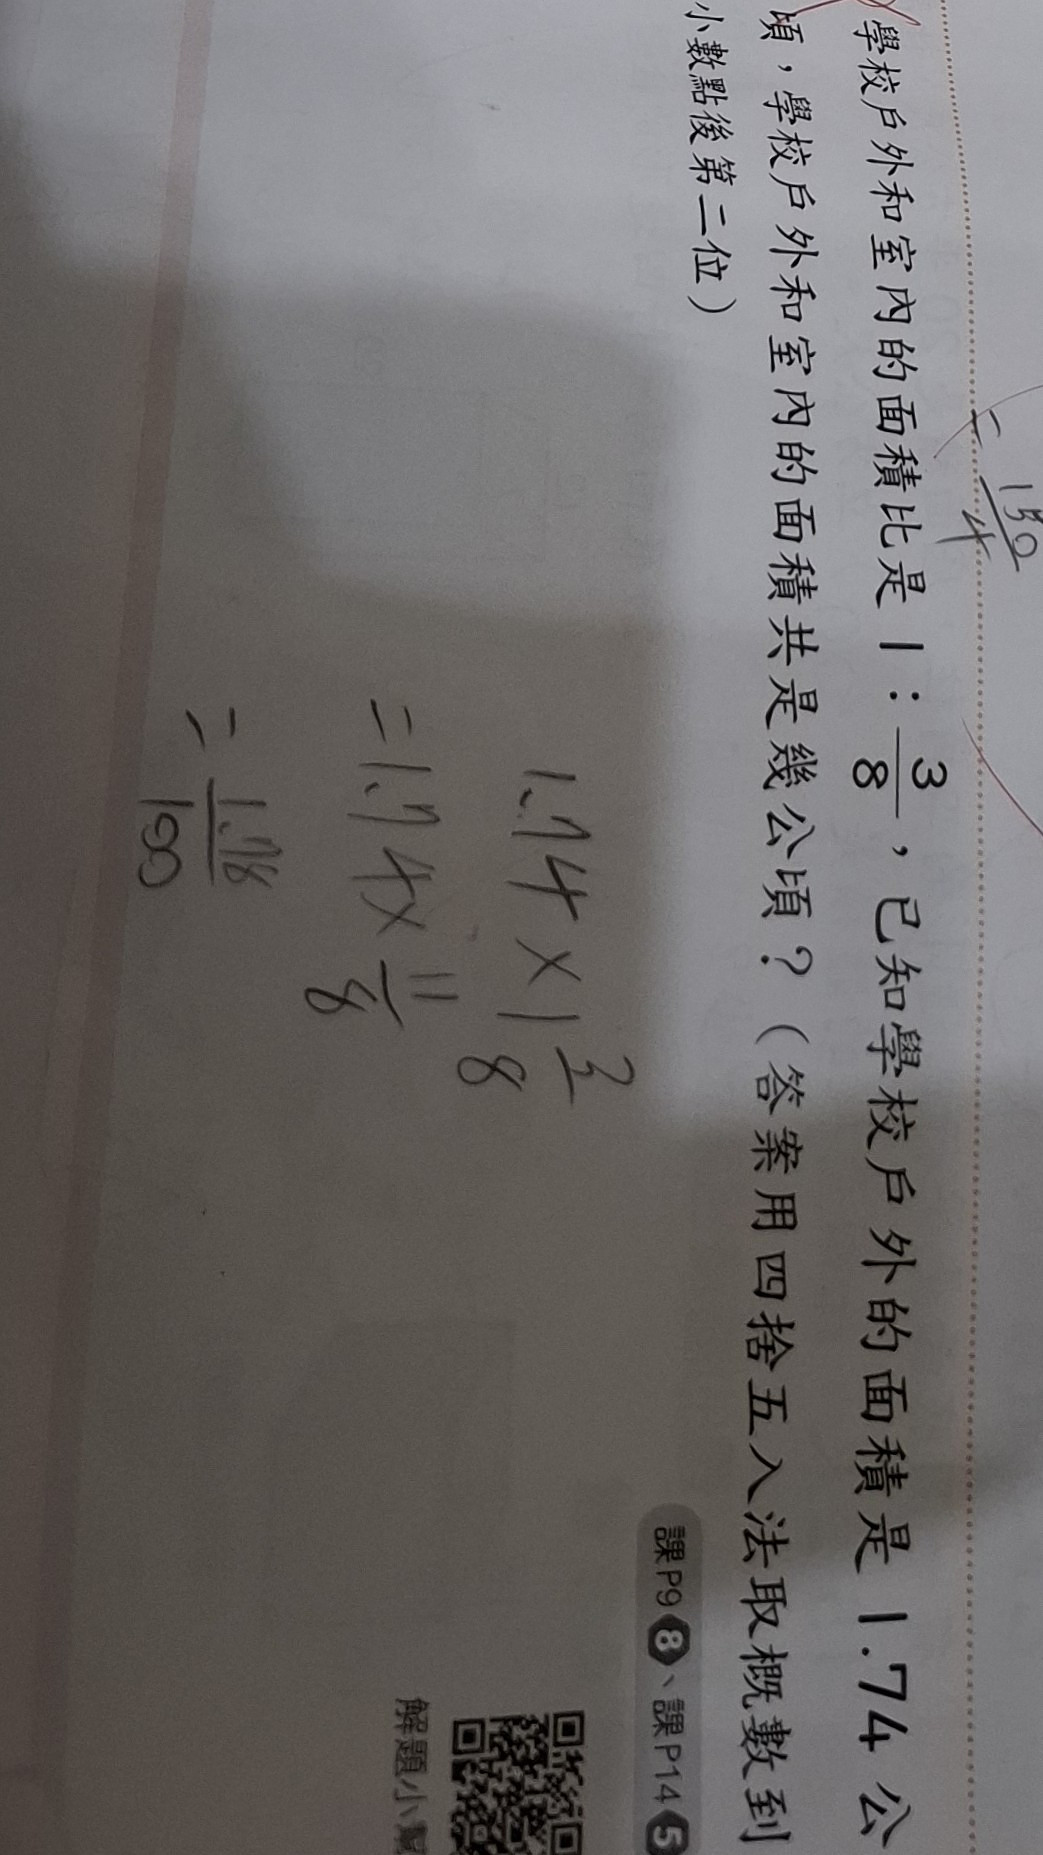 = 150/4
學校戶外和室內的面積比是1:3/8,已知學校戶外的面積是1.74公
頃,學校戶外和室內的面積共是幾公頃?(答案用四捨五入法取概數到
小數點後第二位)
課P9 8、課P14 5
1.74×1 3/8
=1.74×11/8
=
100
解題小